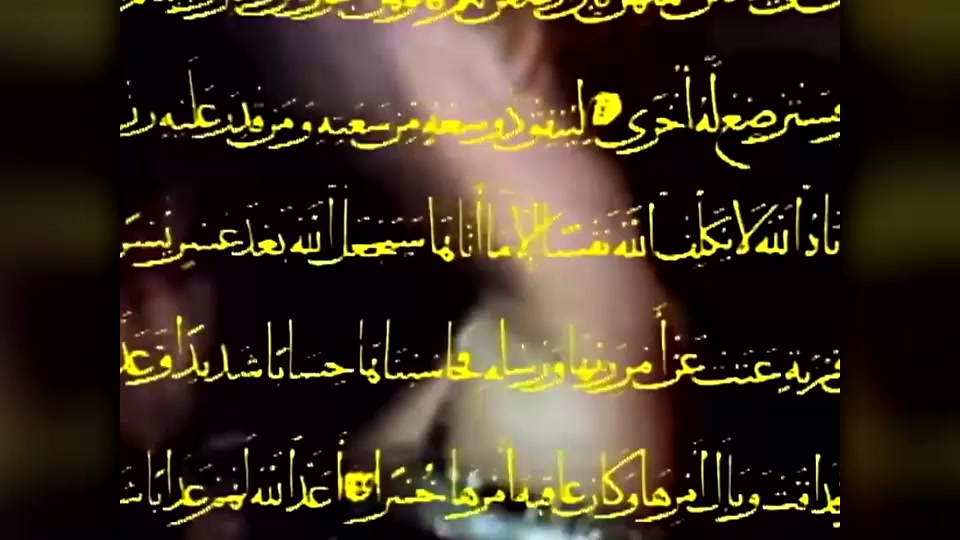 فسترضع له أخرى لينفق ذو سعة من سعته ومن قدر عليه
الله لا يكلف الله نفسا إلا ما أتاها سيجعل الله بعد عسر يسر
قرية عتت عن أمر ربها ورسله فحاسبناها حسابا شديدا وعذ
فذاقت وبال أمرها وكان عاقبة أمرها خسرا أعد الله لهم عذابا شد